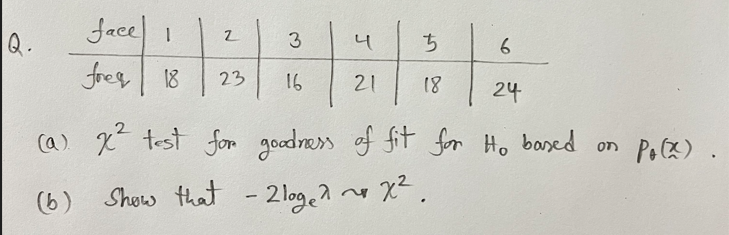 Q. face 1 2 3 4 5 6
freq 18 23 16 21 18 24
(a) χ² test for goodness of fit for H₀ based on p_θ(x̰).
(b) Show that -2logₑλ ~ χ².